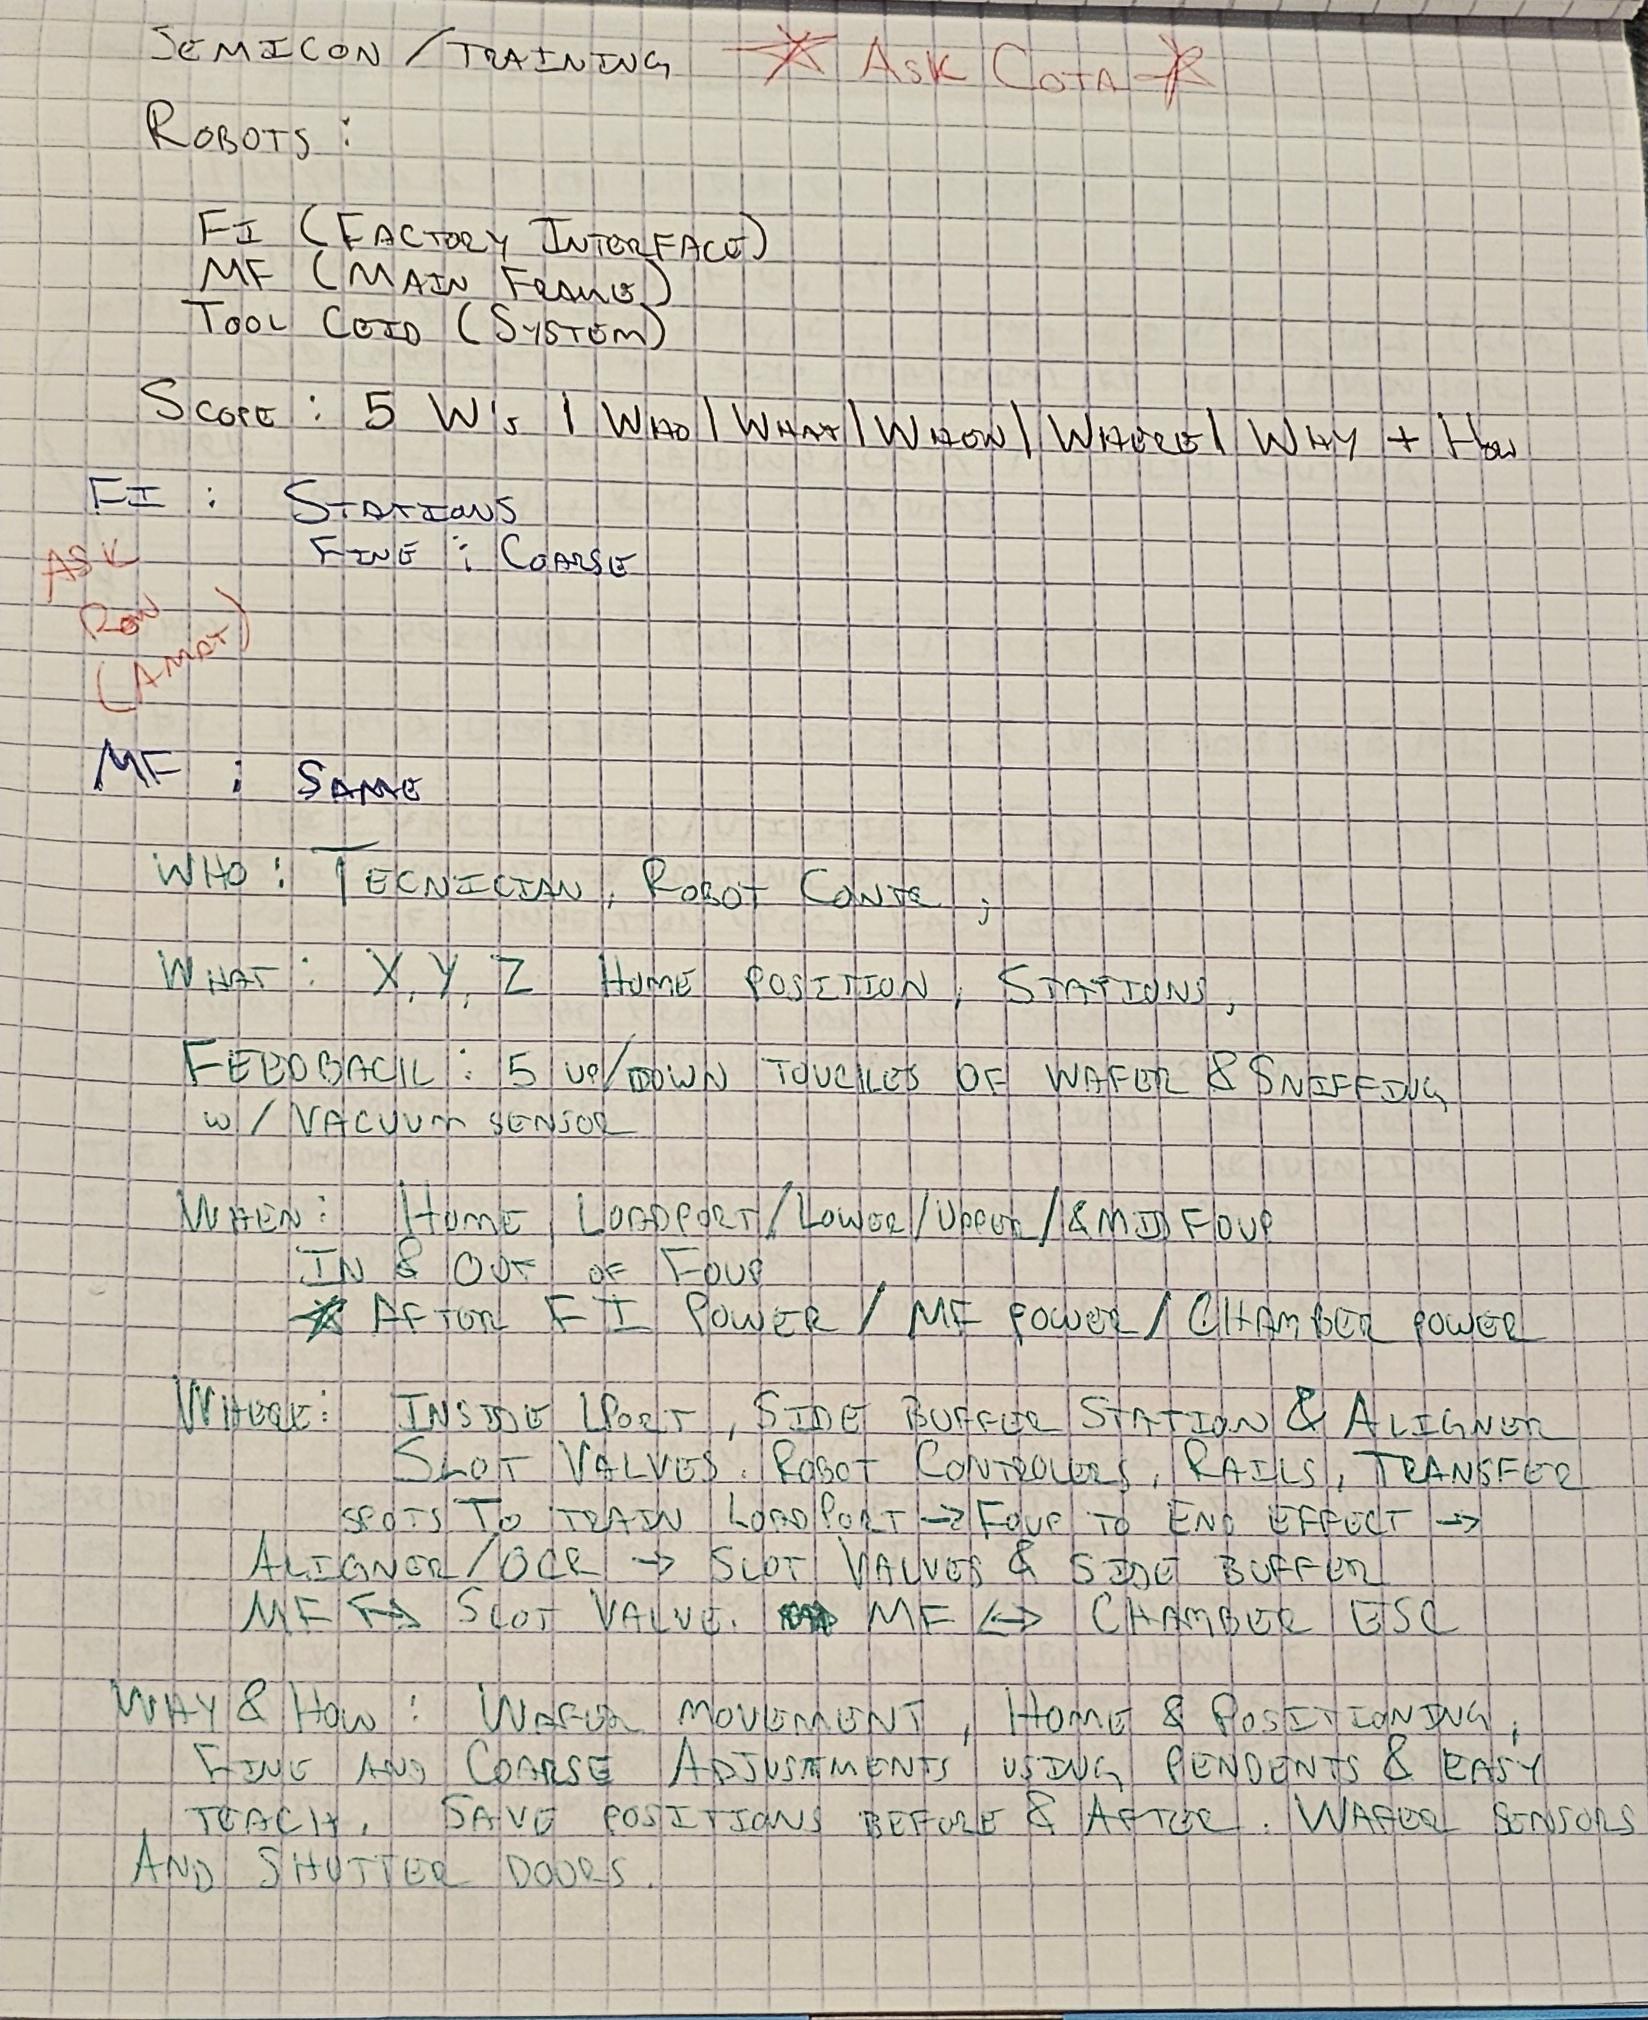 SEMICON / TRAINING ☆ ASK COTA ☆
ROBOTS :
FI (FACTORY INTERFACE)
MF (MAIN FRAME)
TOOL (SYSTEM)
SCOPE : 5 W's | WHO | WHAT | WHEN | WHERE | WHY + How
FI : STATIONS
FINE : COARSE
ASK
RON
(AMAT)
MF : SAME
WHO : TECNICIAN, ROBOT CONTR ;
WHAT : X, Y, Z HOME POSITION, STATIONS,
FEEDBACK : 5 UP/DOWN TOUCHES OF WAFER & SNIFFING
w/ VACUUM SENSOR
WHEN : HOME LOADPORT/LOWER/UPPER/&MID FOUP
IN & OUT OF FOUP
☆ AFTER FI POWER / MF POWER / CHAMBER POWER
WHERE : INSIDE LPORT, SIDE BUFFER STATION & ALIGNER
SLOT VALVES. ROBOT CONTROLLERS, RAILS, TRANSFER
SPOTS TO TRAIN LOADPORT → FOUP TO END EFFECT →
ALIGNER/OCR → SLOT VALVES & SIDE BUFFER
MF ↔ SLOT VALVE. MF ↔ CHAMBER ESC
WHY & HOW : WAFER MOVEMENT, HOME & POSITIONING,
FINE AND COARSE ADJUSTMENTS USING PENDENTS & EASY
TEACH. SAVE POSITIONS BEFORE & AFTER. WAFER SENSORS
AND SHUTTER DOORS.